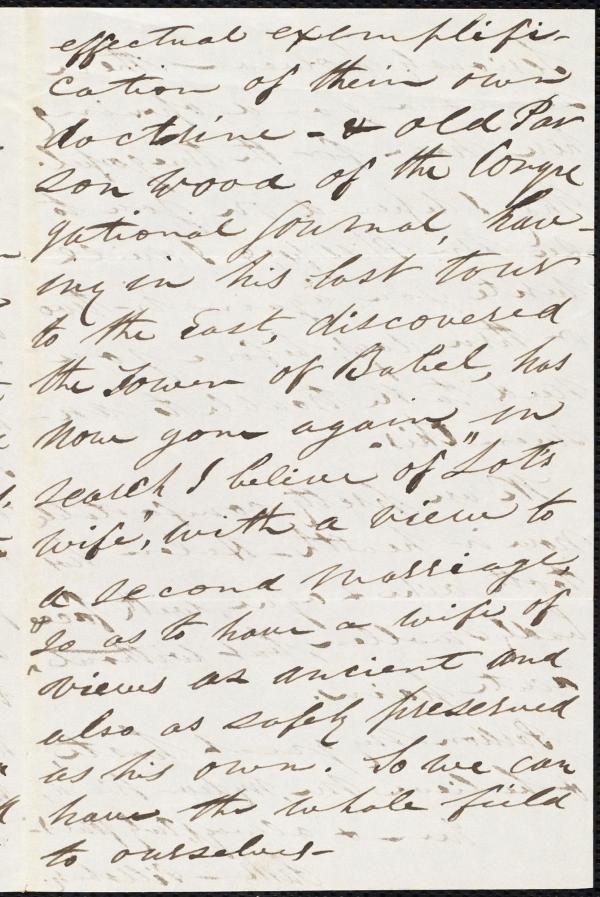 effectual exemplifi-
cation of their own
doctrine - & old Par
son Wood of the Congre
gational Journal, hav-
ing in his last tour
to the East, discovered
the Tower of Babel, has
now gone again in
search I believe of "Lot's
wife", with a view to
a second marriage,
& so as to have a wife of
views as ancient and
also as safely preserved
as his own. So we can
have the whole field
to ourselves-